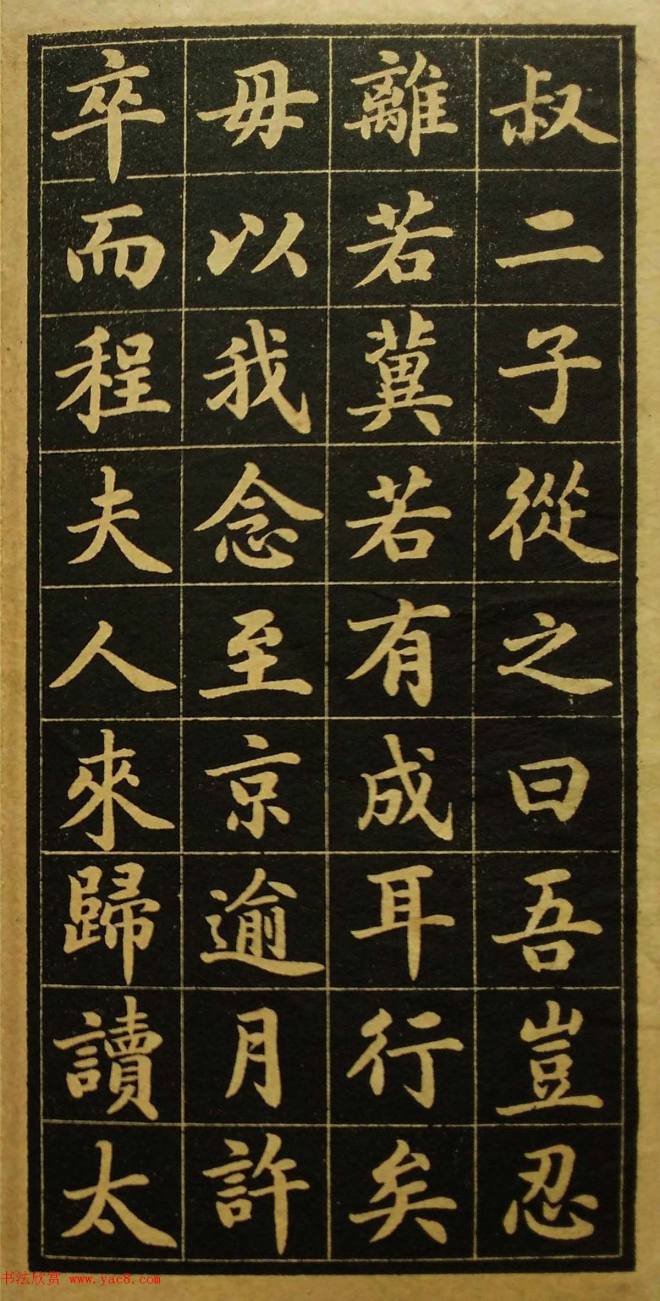 叔二子從之曰吾豈忍
離若冀若有成耳行矣
毋以我念至京逾月許
卒而程夫人來歸讀太
书法欣赏 www.yac8.com